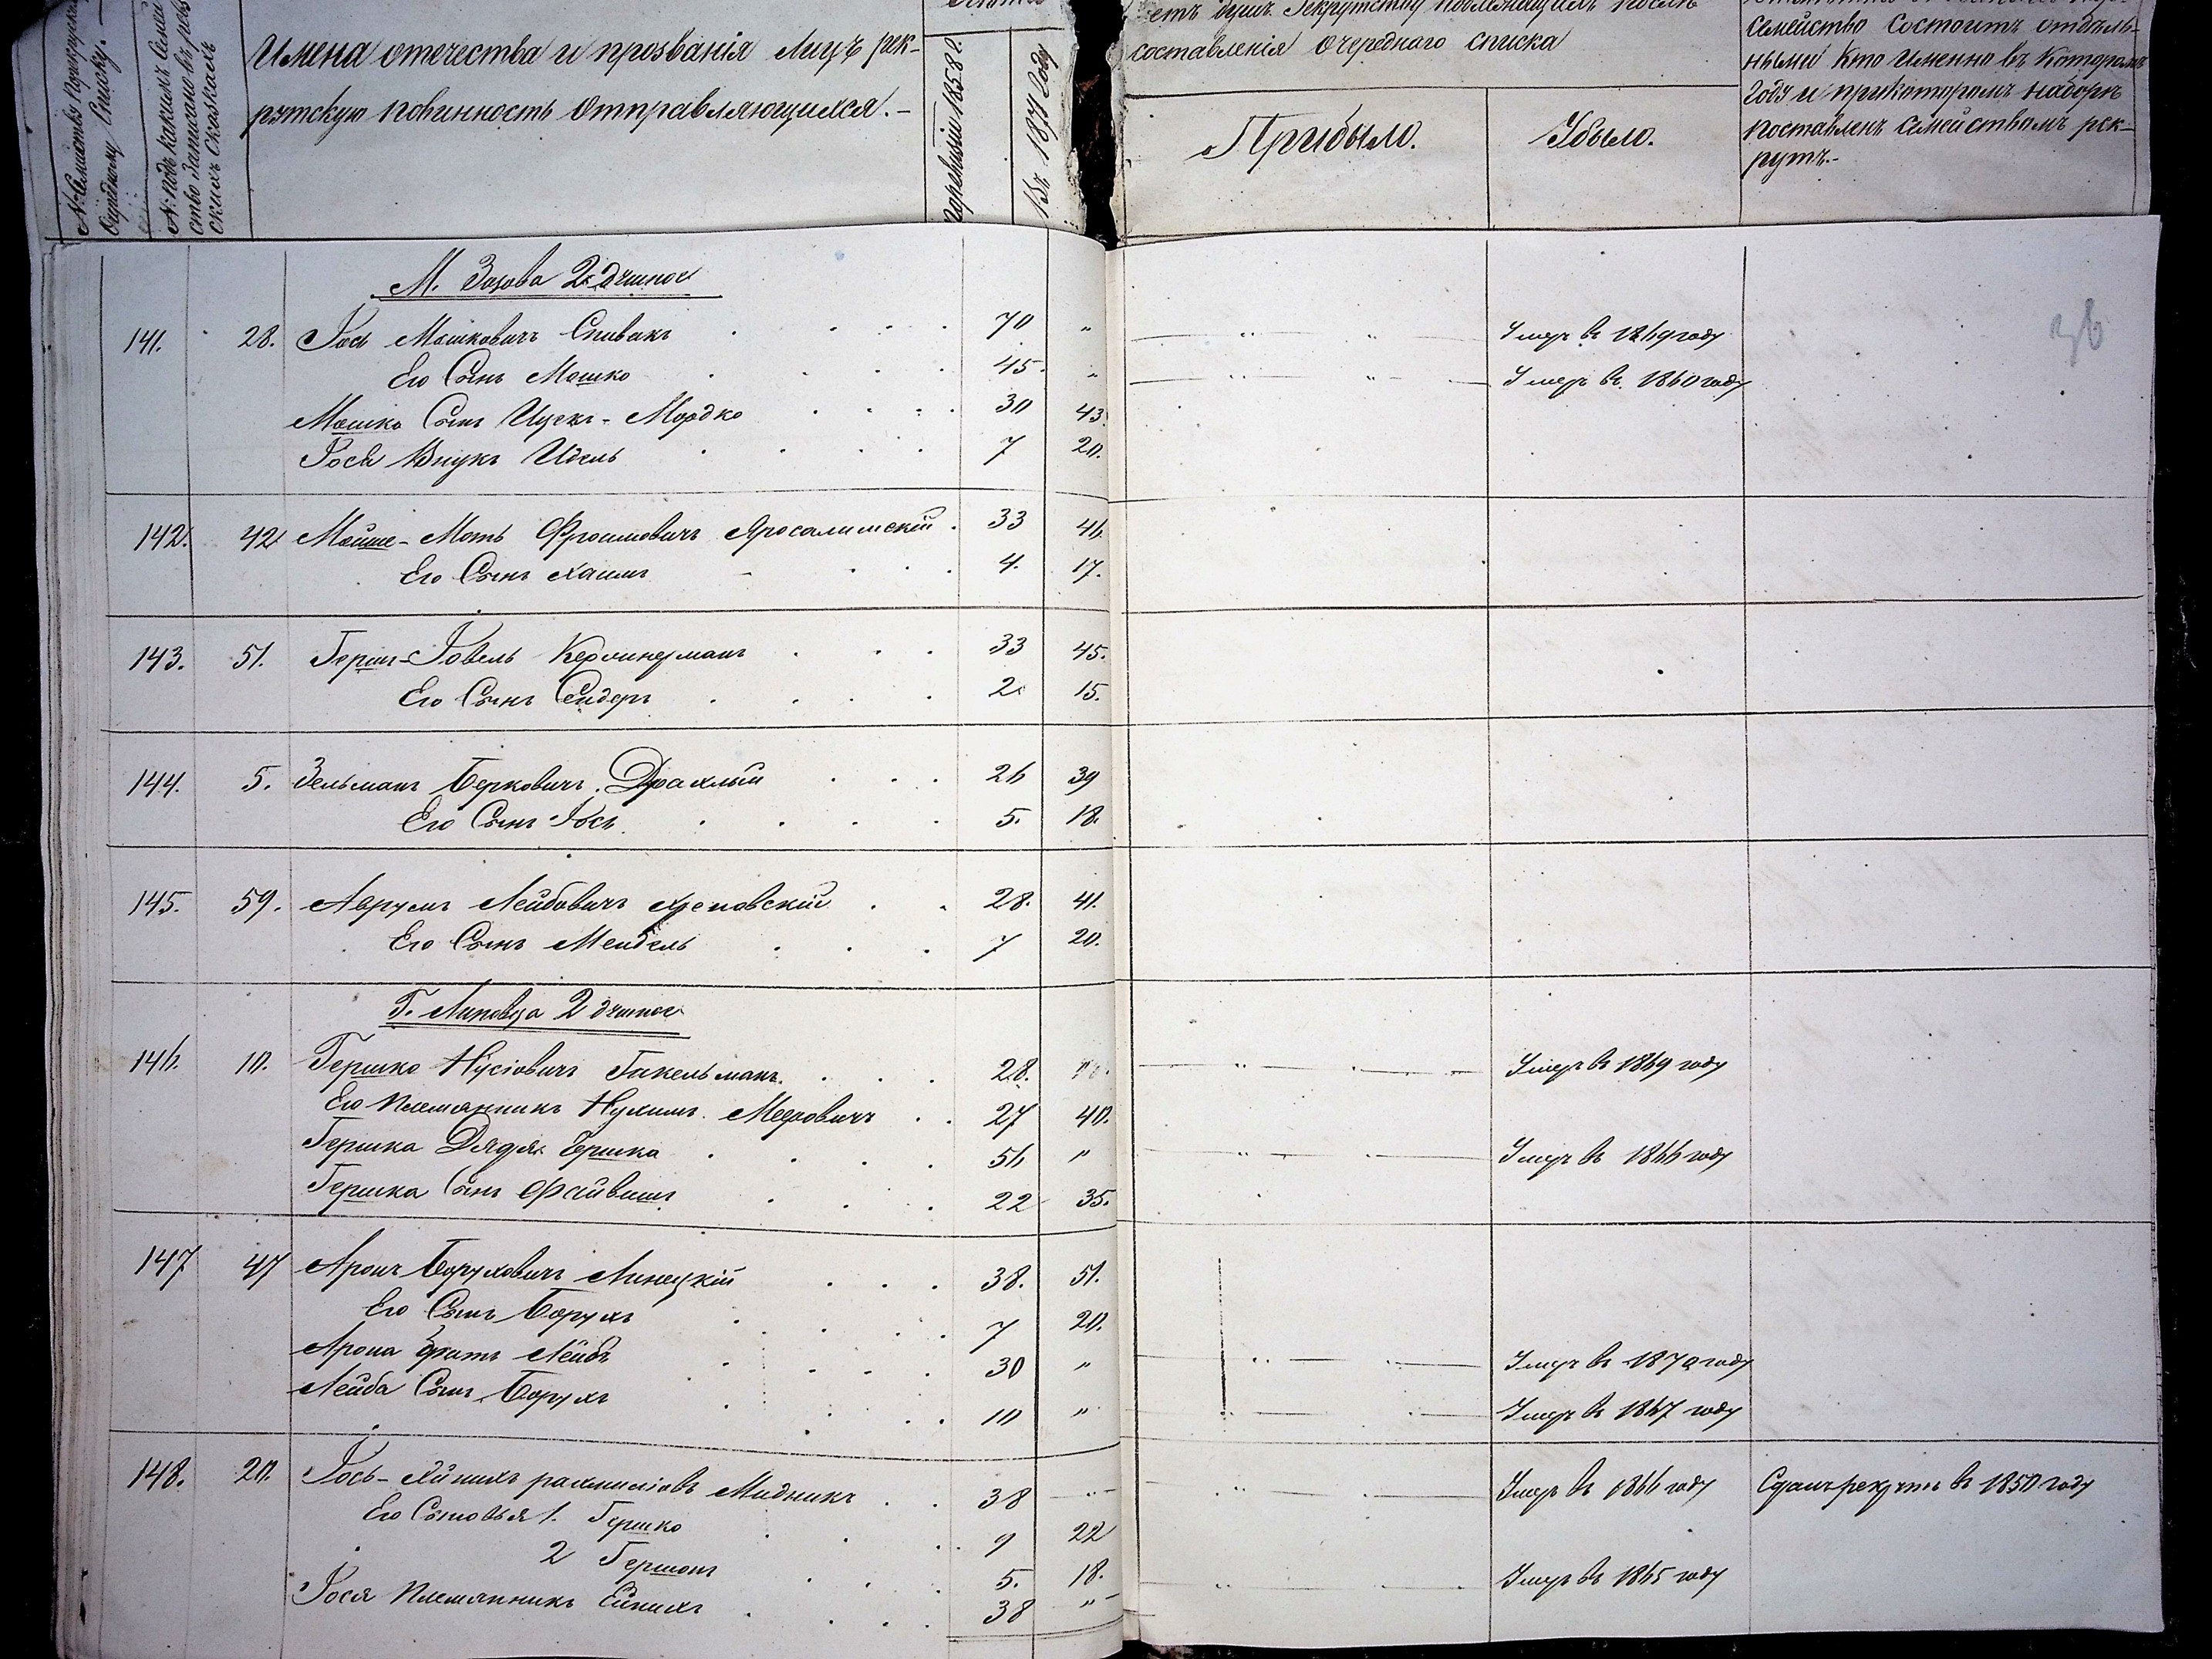 № Семейства по рекрутскому
Очередному Списку.
№ подъ какимъ Семей
ство записано въ рев
скихъ Сказкахъ
Имена отечества и прозванія Лицъ рек-
рутскую повинность отправляющихся.-
По ревизіи 1858 г.
Въ 1871 Году
составленія очереднаго списка
Прибыло.
Убыло.
Семейство Состоитъ отдель-
нымъ Кто Именно въ Которомъ
Году и при которомъ наборѣ
поставленъ Семействомъ рек-
рутъ.-
36
М. Зозова 2
141. 28. Іось Мошковичъ Спивакъ 70 " Умеръ въ 1869 году
Его Сынъ Мошко 45. " Умеръ въ 1860 году
Мошка Сынъ Ицекъ-Мордко 30 43.
Іося Внукъ Идель 7 20.
142. 42 Мойше-Моть Фроимовичъ Яросалимскій 33 46.
Его Сынъ Хаимъ 4. 17.
143. 51. Гершъ-Іовель 33 45.
Его Сынъ Сендеръ 2. 15.
144. 5. Зельманъ Берковичъ Драхлый 26 39
Его Сынъ Іось 5. 18.
145. 59. Аврумъ Лейбовичъ 28. 41.
Его Сынъ Мендель 7 20.
Г. Липовца 2
146. 10. Гершко Нусіовичъ Гакельманъ 28. Умеръ въ 1869 году
Его Племянникъ Нухимъ Мееровичъ 27 40.
Гершка Дядя Гершко 56 " Умеръ въ 1866 году
Гершка Сынъ Файвишъ 22 35.
147 47 Аронъ Боруховичъ Линецкій 38. 51.
Его Сынъ Борухъ 7 20.
Арона братъ Лейба 30 " Умеръ въ 1870 году
Лейба Сынъ Борухъ 10 " Умеръ въ 1867 году
148. 20. Іось-Айнихъ Рахмиліовъ Мидникъ 38 " Умеръ въ 1866 году Сдалъ рекрута въ 1850 году
Его Сыновья 1. Гершко 9 22
2 Гершонъ 5. 18.
Іося Племянникъ Ейнихъ 38 " Умеръ въ 1865 году